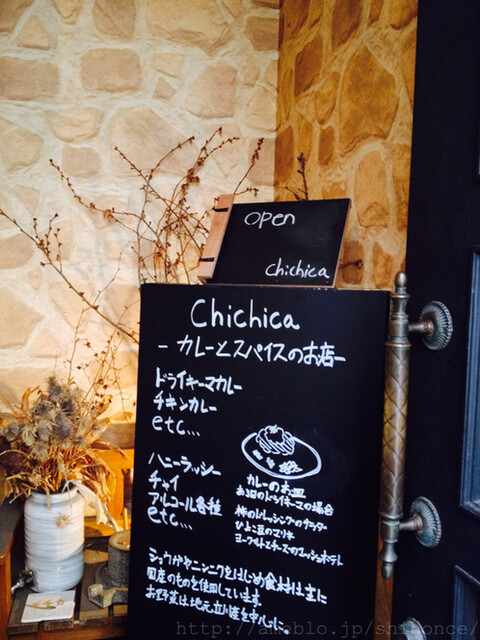 open
chichica
Chichica
- カレーとスパイスのお店 -
ドライキーマカレー
チキンカレー
etc...
ハニーラッシー
チャイ
アルコール各種
etc...
カレーのお皿
ある日のドライキーマの場合
ひよこ豆の
ショウガやニンニクをはじめ食材は主に
国産のものを使用しています。
お野菜は地元立川産を中心に
http://ameblo.jp/shinonce/